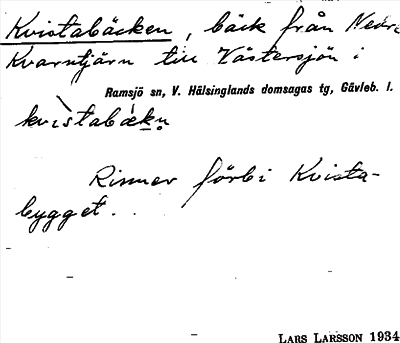 Kvistabäcken, bäck från Nedre
Kvarntjärn till Västersjön i
Ramsjö sn, V. Hälsinglands domsagas tg, Gävleb. l.
kvìstabäkn̥
Rinner förbi Kvista-
bygget.
LARS LARSSON 1934